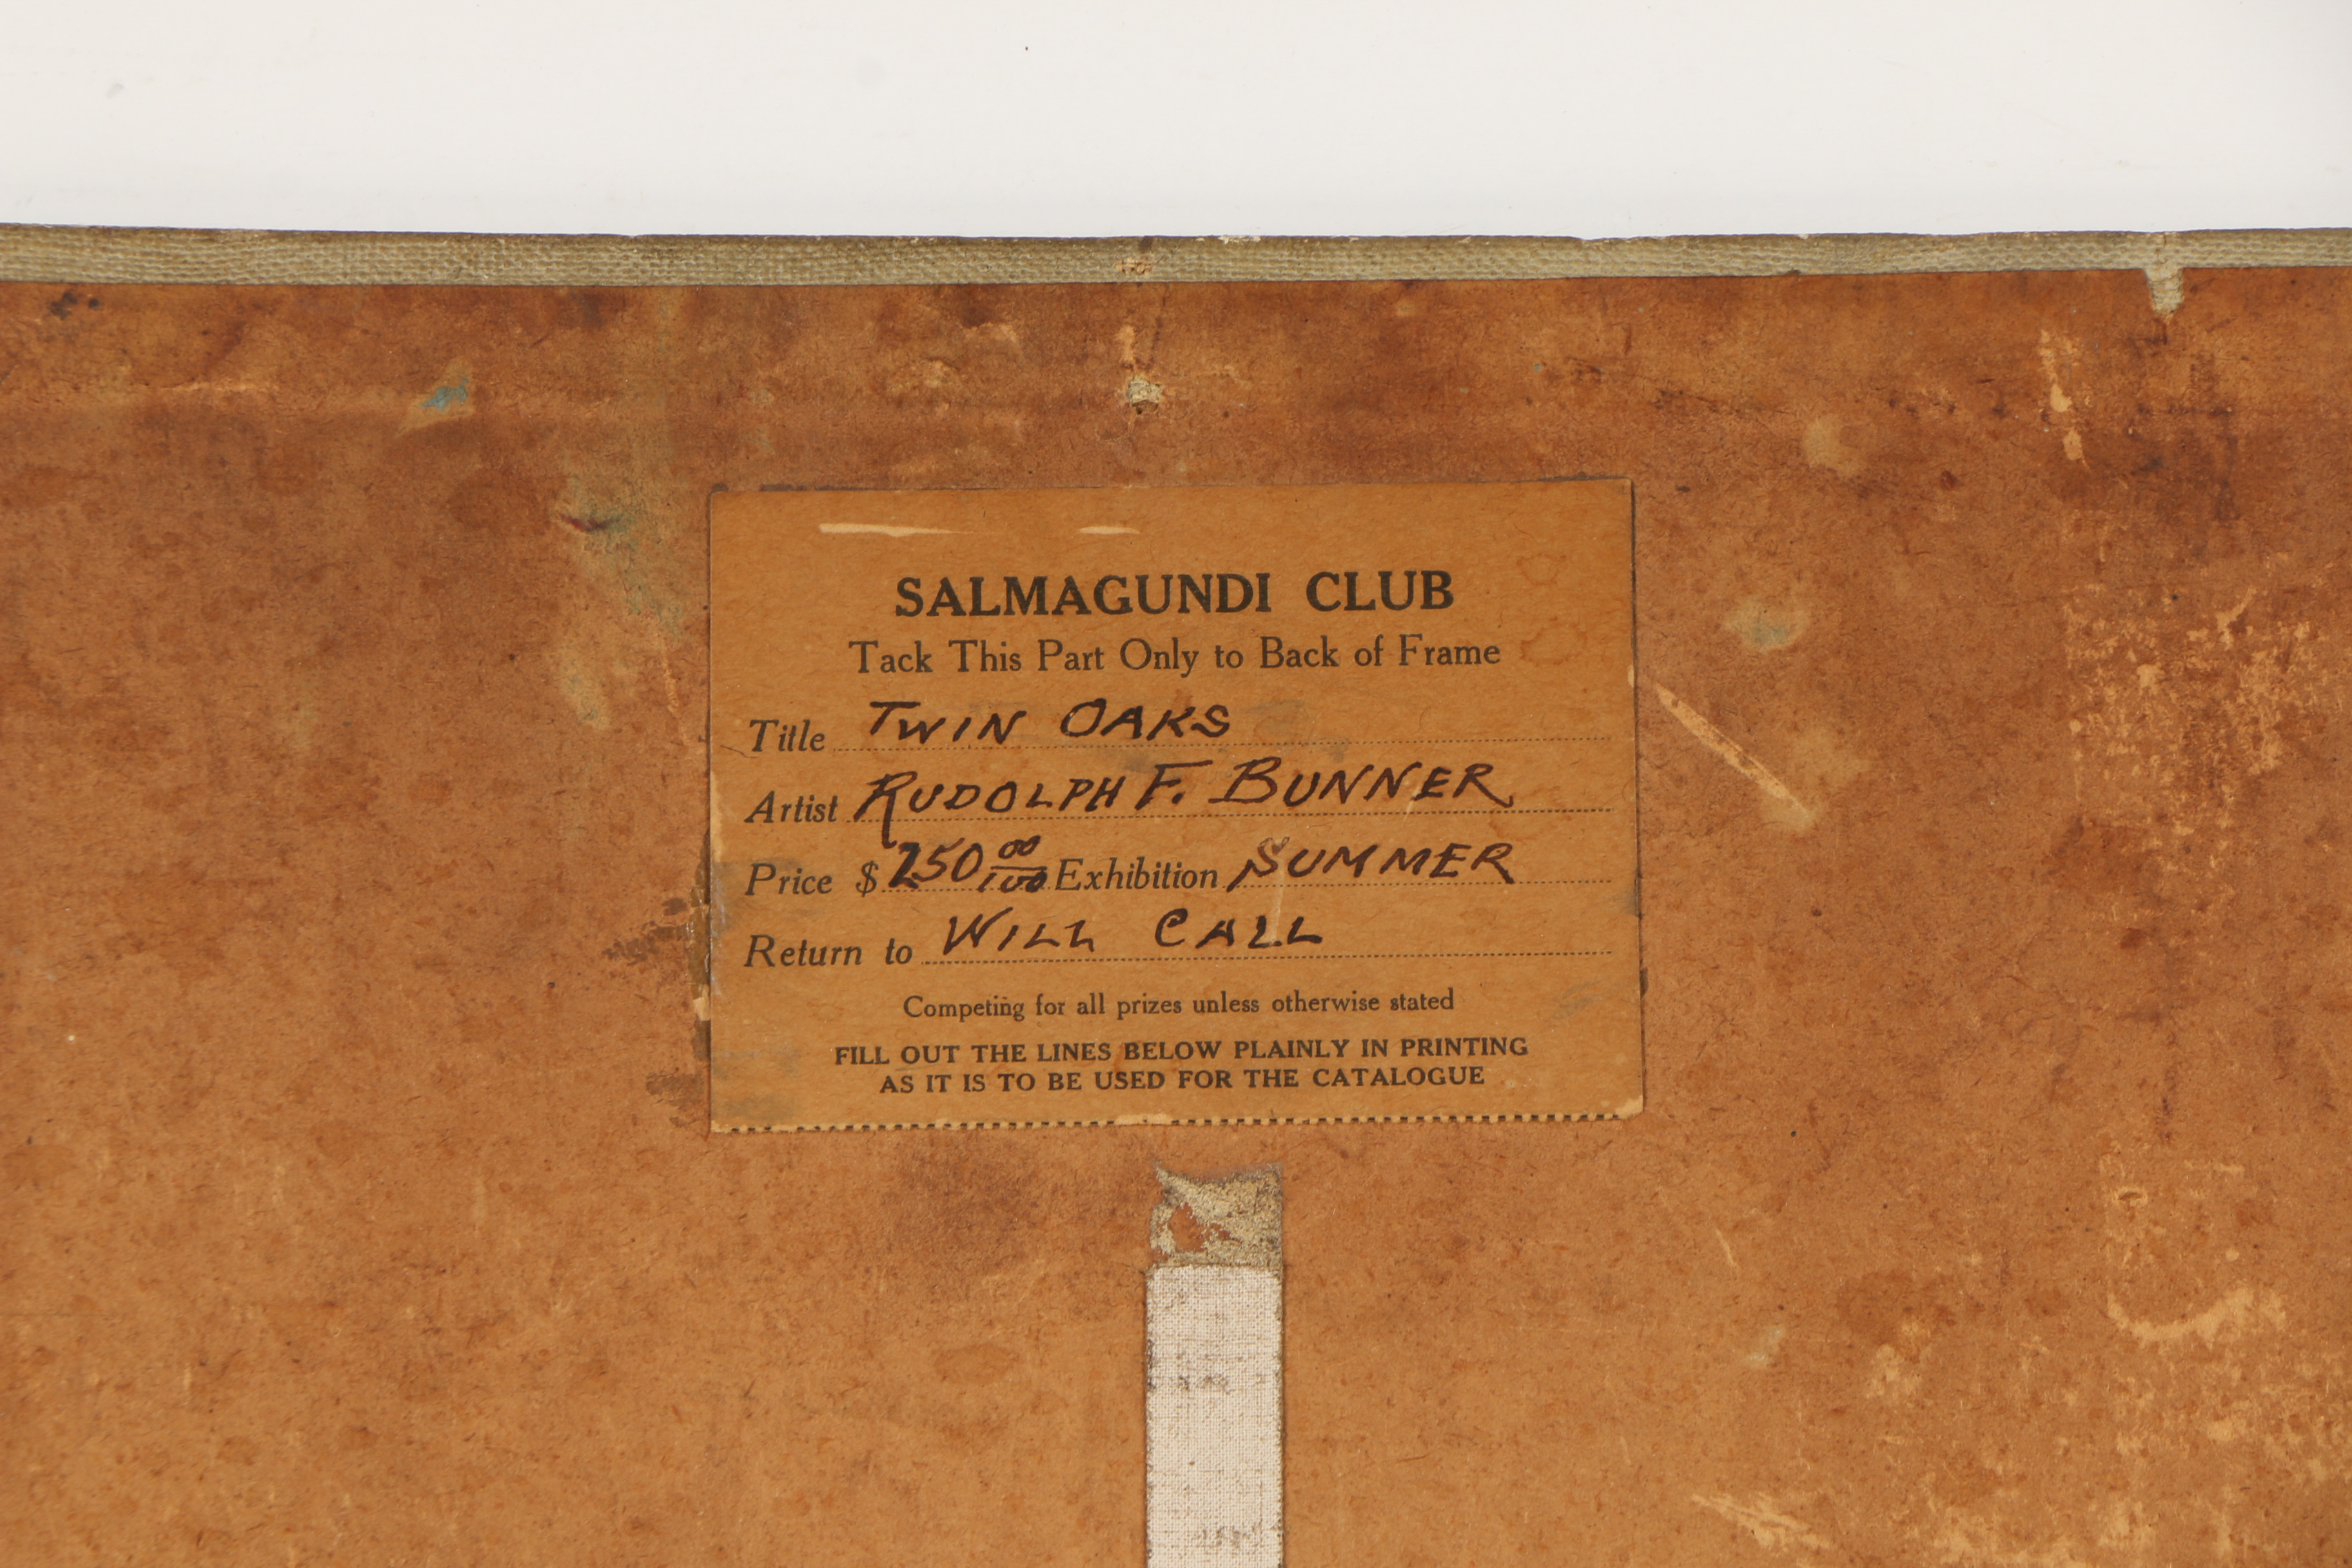 SALMAGUNDI CLUB
Tack This Part Only to Back of Frame
Title TWIN OAKS
Artist RUDOLPH F. BUNNER
Price $ 250 00/100 Exhibition SUMMER
Return to WILL CALL
Competing for all prizes unless otherwise stated
FILL OUT THE LINES BELOW PLAINLY IN PRINTING
AS IT IS TO BE USED FOR THE CATALOGUE